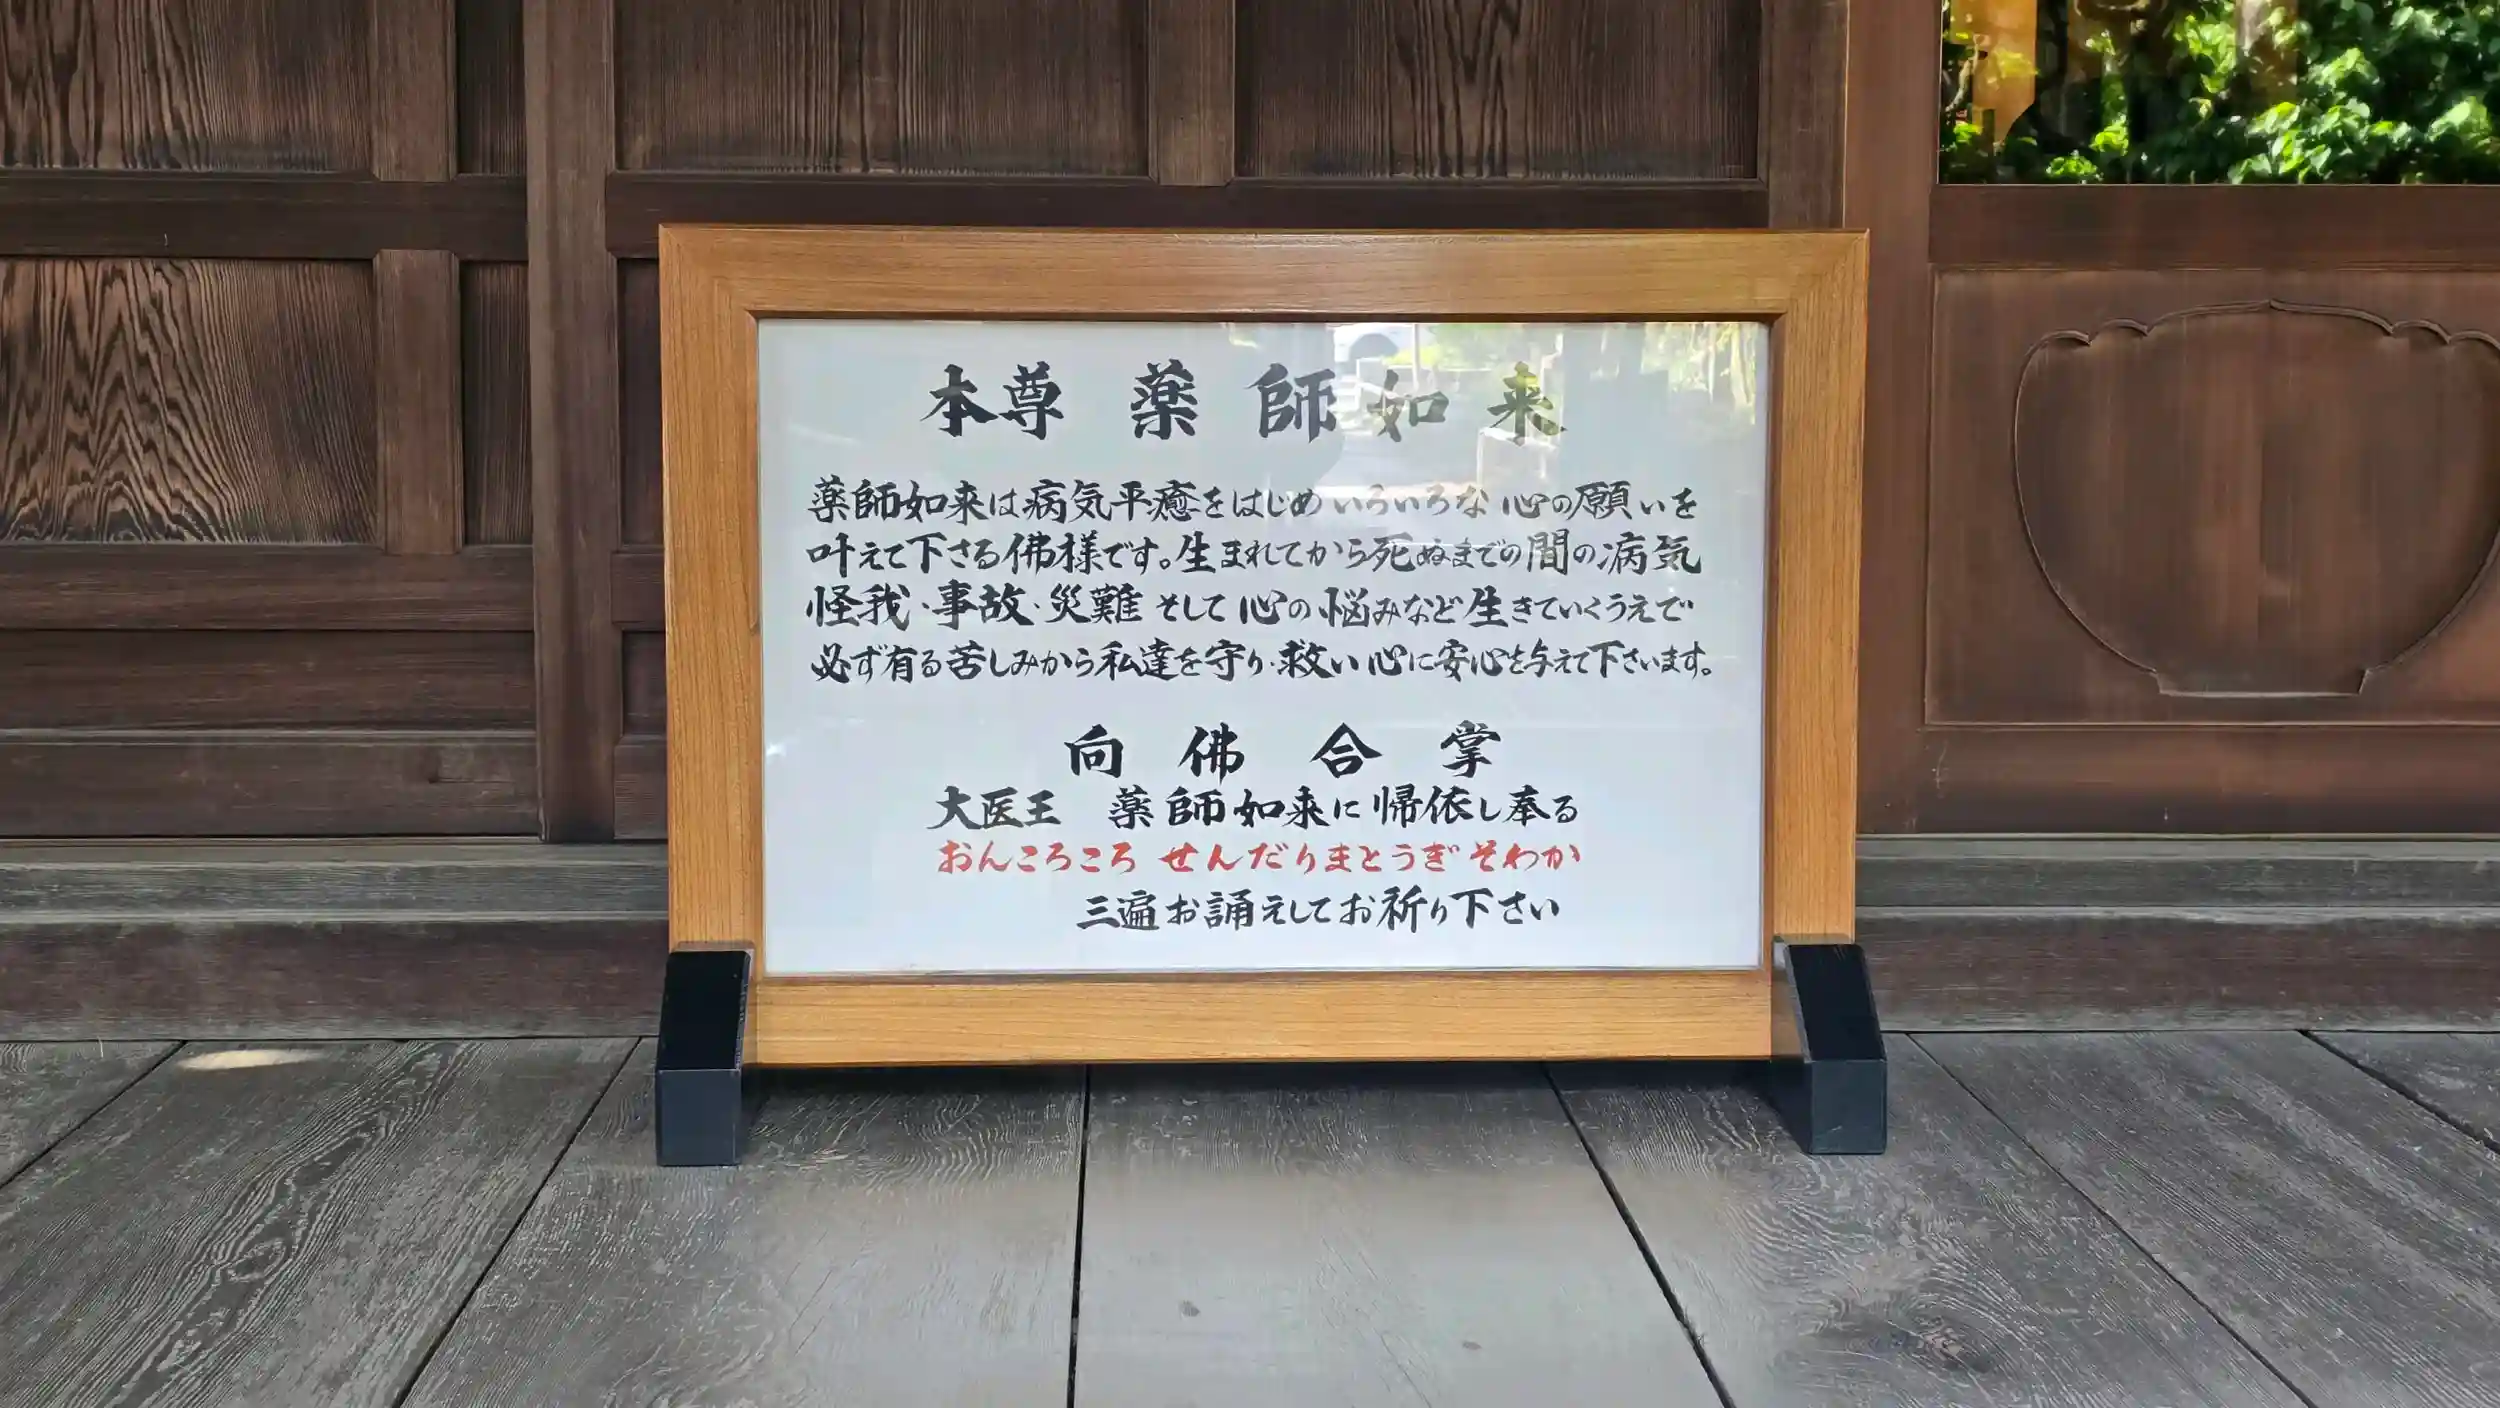 本尊 薬師如来
薬師如来は病気平癒をはじめいろいろな心の願いを
叶えて下さる佛様です。生まれてから死ぬまでの間の病気
怪我・事故・災難そして心の悩みなど生きていくうえで
必ず有る苦しみから私達を守り・救い心に安心を与えて下さいます。
向佛合掌
大医王 薬師如来に帰依し奉る
おんころころ せんだりまとうぎ そわか
三遍お誦えしてお祈り下さい